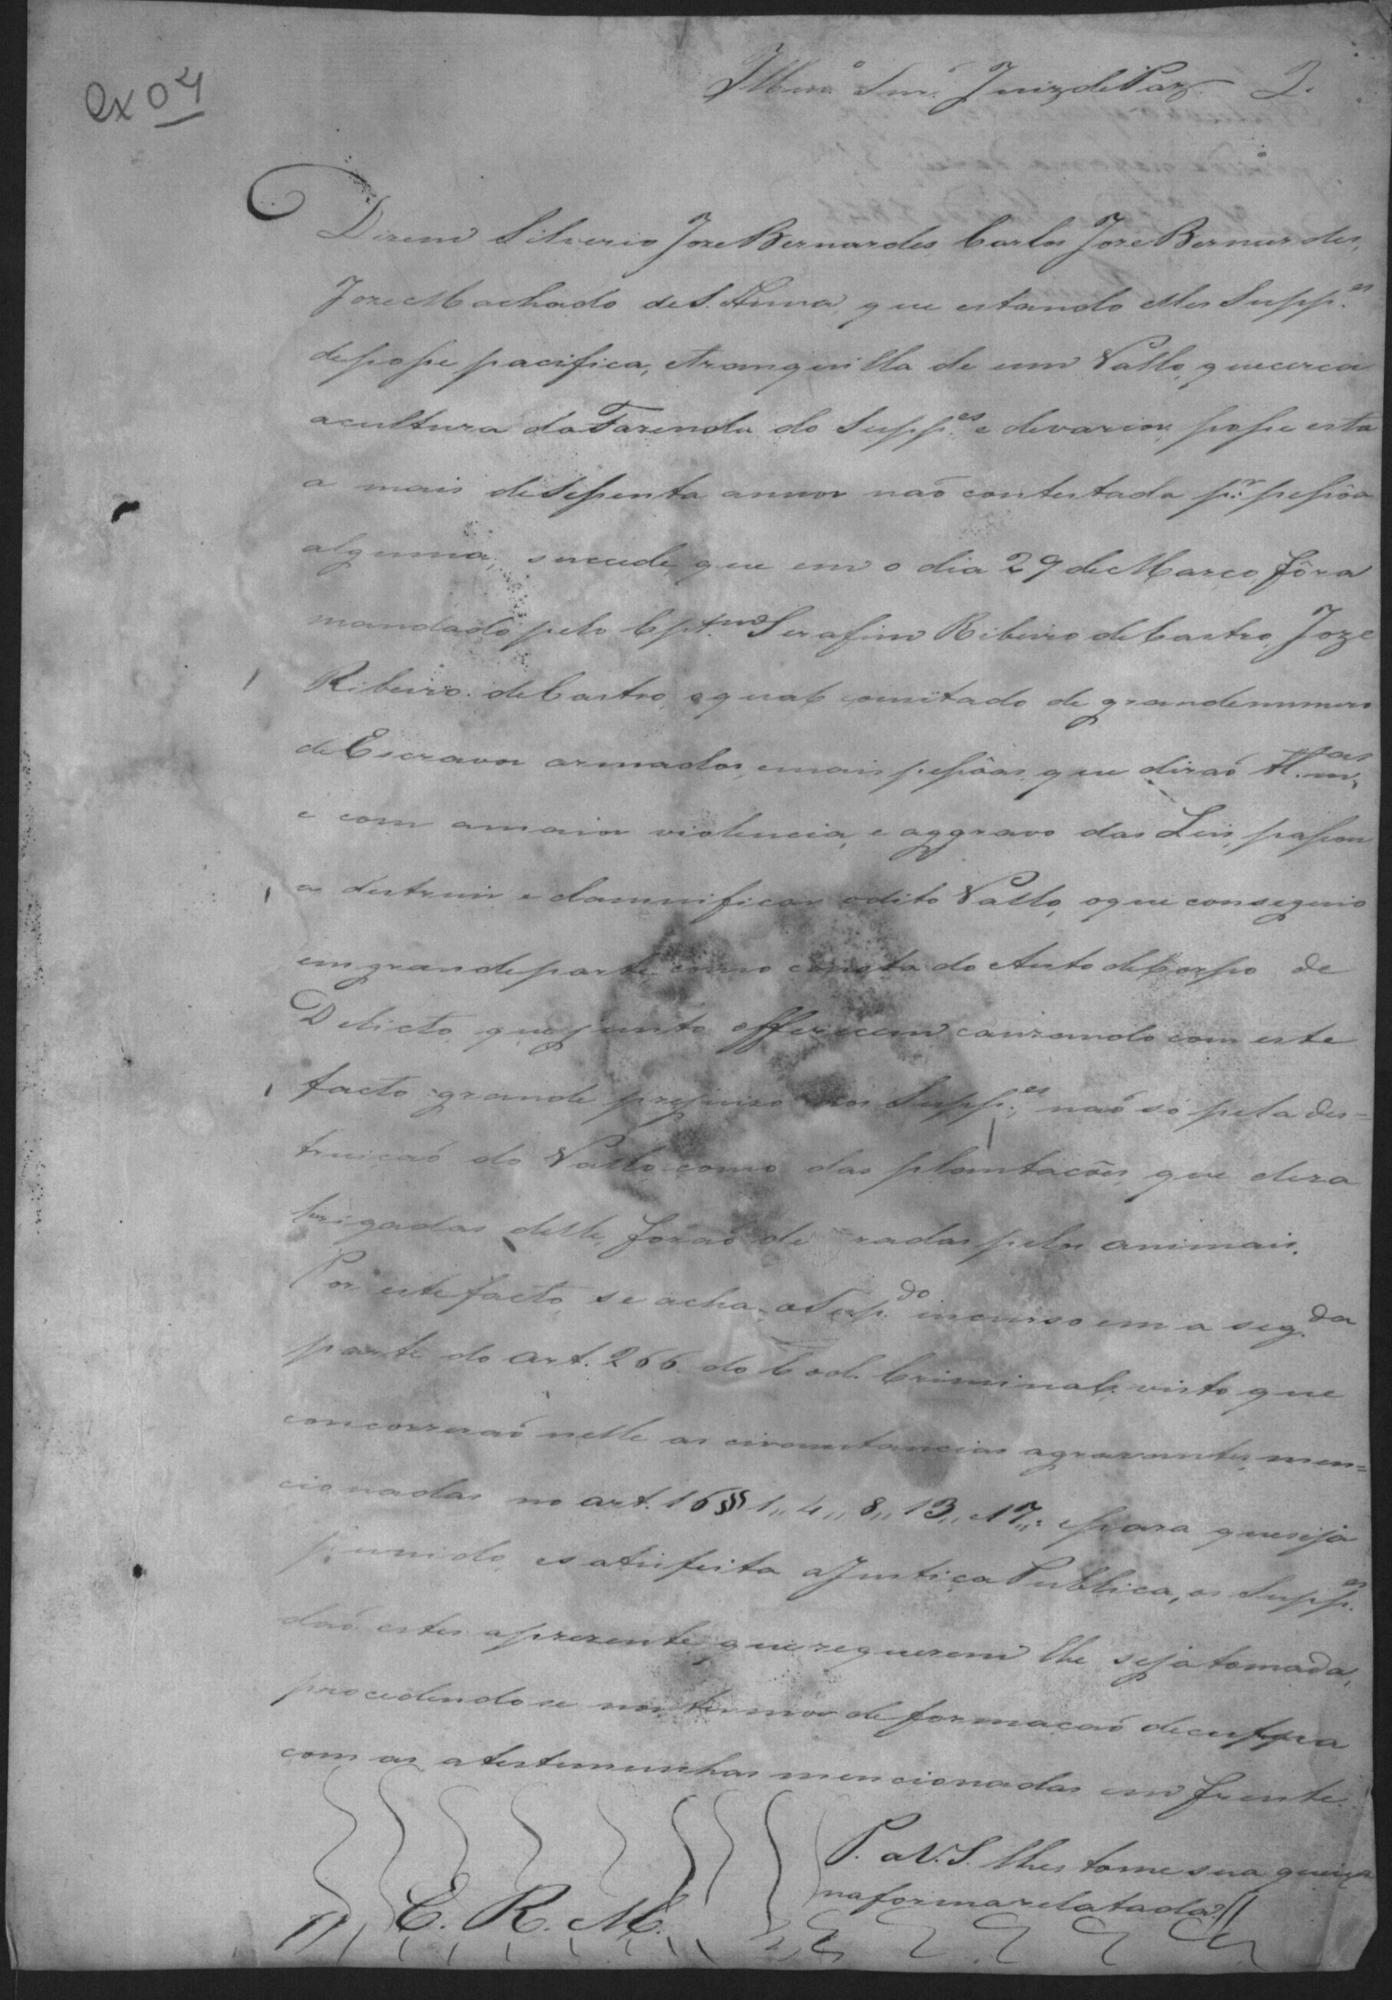 ex 04
Illmo. Snr. Juiz de Paz. 2.
Dizem Silverio Joze Bernardes, Carlos Joze Bernardes,
Joze Machado de S. Anna, que estando elles Supp.es
de posse pacifica, e tranquilla de um Vallo, que cerca
a cultura da Fazenda do Supp.es e de varios, posse esta
a mais de sessenta annos naõ contestada p.r pessôa
alguma, succede, que em o dia 29 de Março, fôra
mandado pelo Cpt.am Serafim Ribeiro de Castro, Joze
Ribeiro de Castro, o qual comitado de grande numero
de Escravos armados, e mais pessôas, que diraõ as
e com a maior violencia, e aggravo das Leis, passou
a destruir e damnificar o dito Vallo, o que conseguio
em grande parte, como consta do Auto de Corpo de
Delicto, que junto offerecem cauzando com este
facto grande prejuizo aos Supp.es, naõ só pela des=
truiçaõ do Vallo como das plantacões, que dera
brigadas delle, foraõ de radas pelos animais.
Por este facto, se acha o Sup.do incurso em a seg.da
parte do art. 266 do Cod. Criminal, visto que
concorreraõ nelle as circunstancias agravantes, men=
cionadas no art. 16 §§ 1,, 4,, 8,, 13,, e 17,,: e para que seja
punido, e satisfeita a Justiça Publica, os Supp.es
daõ estes a prezente, que requerem lhe seja tomada,
procedendo se nos termos de formacaõ de culppa
com as atestemunhas mencionadas em frente.
P. a V. S. lhes tome sua queixa
na forma relatada.
E. R. M.